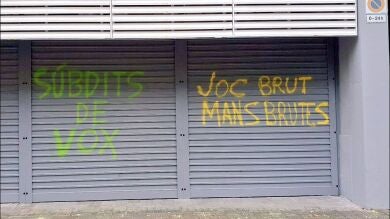 SÚBDITS
DE
VOX
JOC BRUT
MANS BRUTES